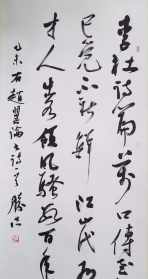 李杜詩篇萬口傳至
已覺不新鮮江山代有
才人出各領風騷數百年
右趙翼論詩